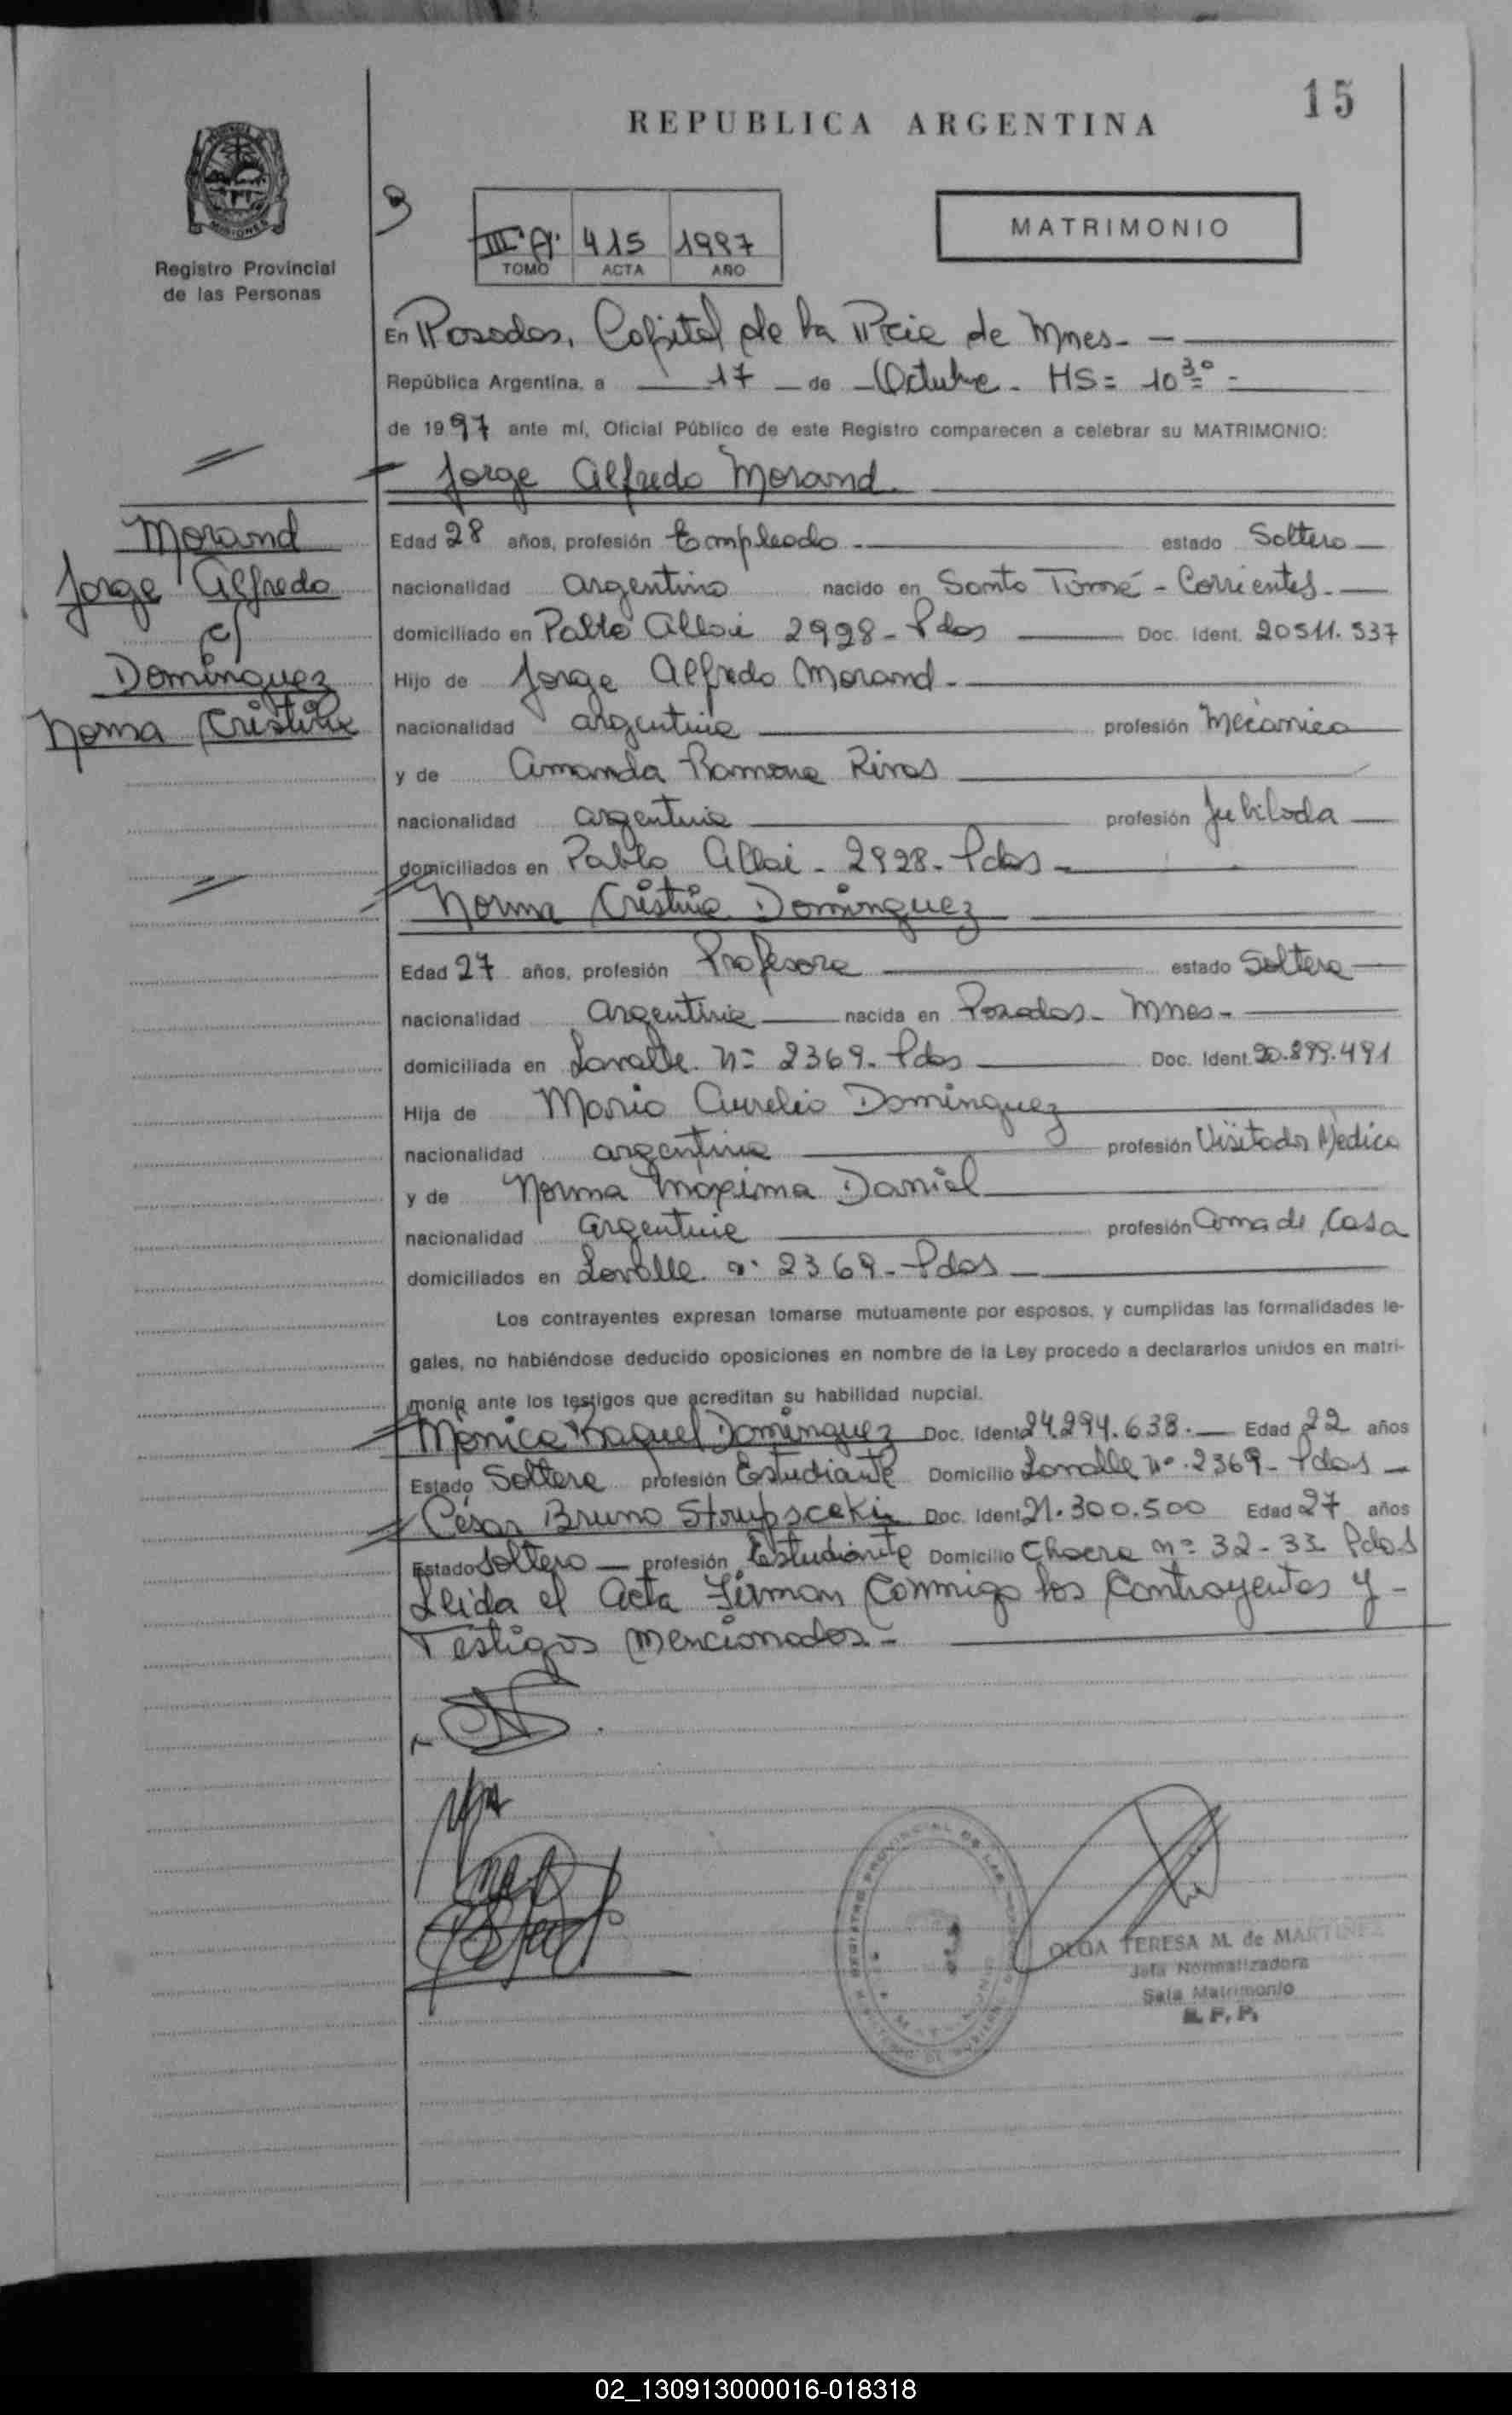 15
REPUBLICA ARGENTINA
MISIONES
Registro Provincial
de las Personas
III·A· 415 1997
TOMO ACTA AÑO
MATRIMONIO
En Posadas, Capital de la Pcia de Mnes- —
República Argentina, a 17 de Octubre - HS= 10 30 -
de 1997 ante mí, Oficial Público de este Registro comparecen a celebrar su MATRIMONIO:
Jorge Alfredo Morand
Morand
Jorge Alfredo
c/
Dominguez
Norma Cristina
Edad 28 años, profesión Empleado estado Soltero
nacionalidad argentino nacido en Santo Tomé - Corrientes-
domiciliado en Pablo Allai 2928 - Pdas Doc. Ident. 20511.537
Hijo de Jorge Alfredo Morand-
nacionalidad argentina profesión Mecanico
y de Amanda Ramona Rivas
nacionalidad argentina profesión Jubilada
domiciliados en Pablo Allai - 2928- Pdas-
Norma Cristina Dominguez
Edad 27 años, profesión Profesora estado Soltera
nacionalidad Argentina nacida en Posadas- Mnes-
domiciliada en Lavalle nº 2369- Pdas Doc. Ident. 20.899.491
Hija de Mario Aurelio Dominguez
nacionalidad argentina profesión Visitador Medico
y de Norma Maxima Daniel
nacionalidad Argentina profesión Ama de Casa
domiciliados en Lavalle nº 2369- Pdas
Los contrayentes expresan tomarse mutuamente por esposos, y cumplidas las formalidades le-
gales, no habiéndose deducido oposiciones en nombre de la Ley procedo a declararlos unidos en matri-
monio ante los testigos que acreditan su habilidad nupcial.
Mónica Raquel Dominguez Doc. Ident. 24.294.638.- Edad 22 años
Estado Soltera profesión Estudiante Domicilio Lavalle nº 2369- Pdas
César Bruno Strupsceki Doc. Ident. 21.300.500 Edad 27 años
Estado Soltero profesión Estudiante Domicilio Chacra nº 32-33 Pdas
Leida el Acta Firman Conmigo los Contrayentes y -
Testigos mencionados-
REGISTRO PROVINCIAL DE LAS
OLGA TERESA M. de MARTINEZ
Jefa Normalizadora
Sala Matrimonio
R. P. P.
02_130913000016-018318